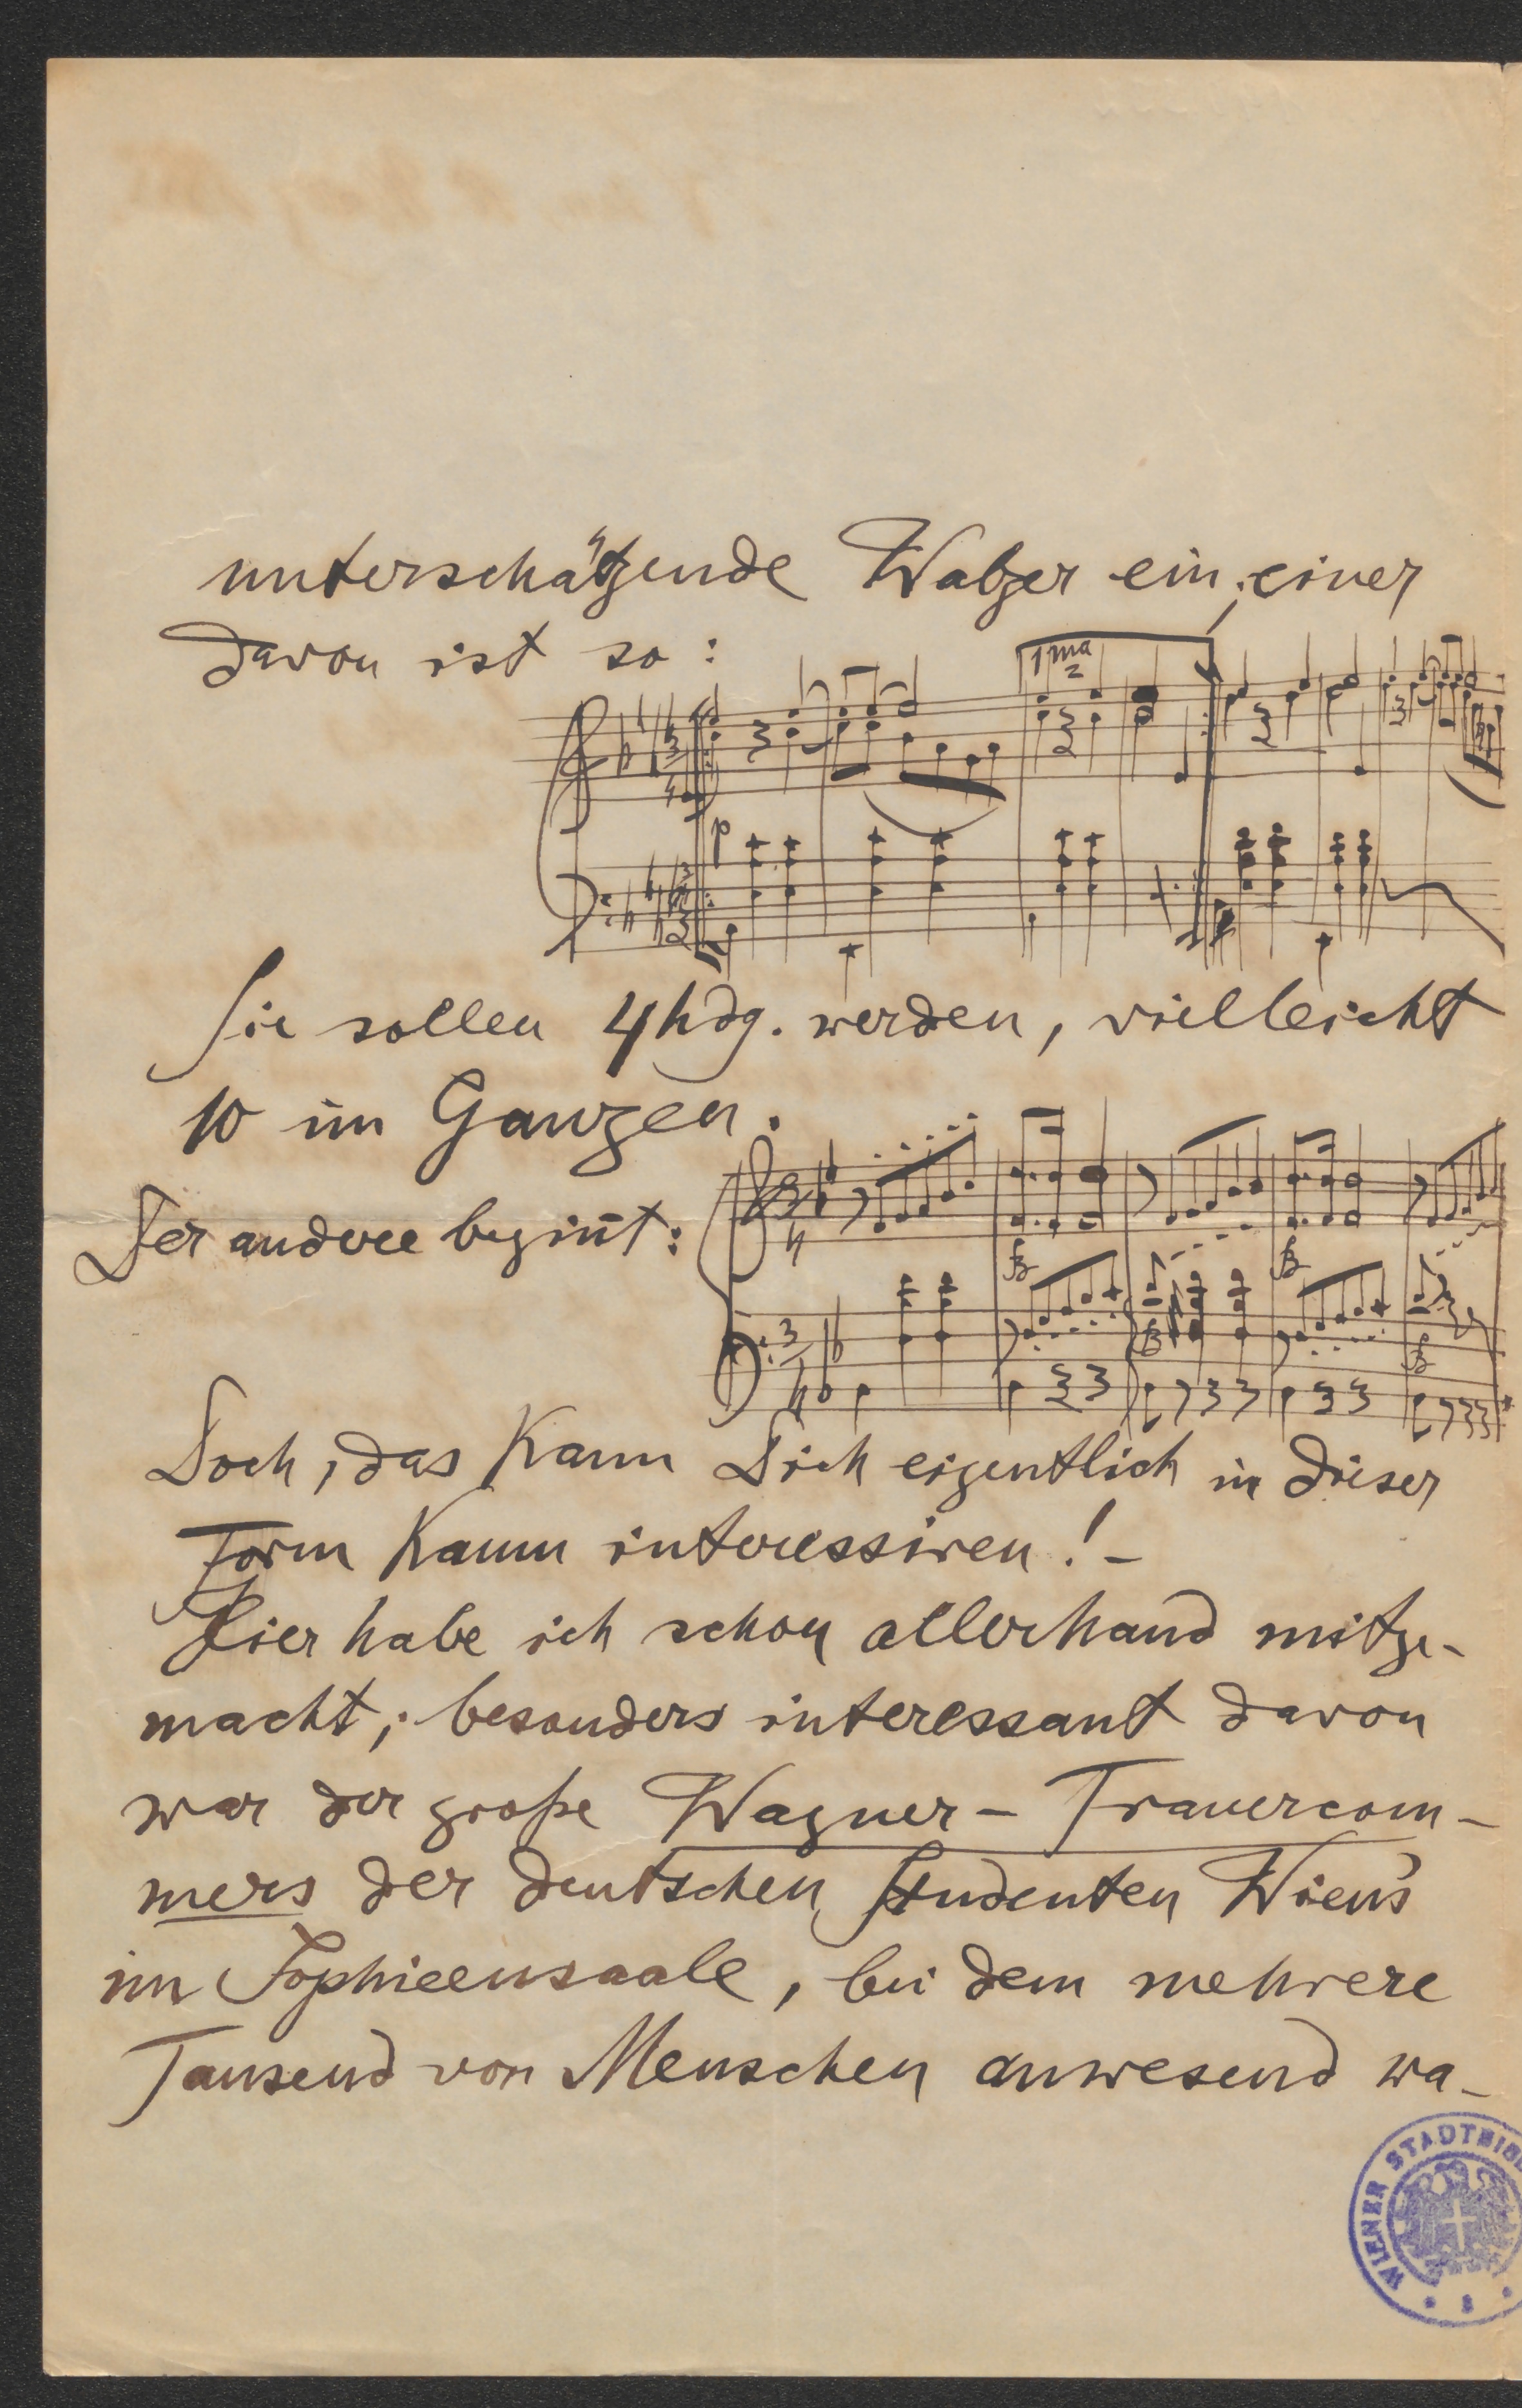 unterschätzende Walzer ein; einer
davon ist so:
1ma
p
Sie sollen 4hdg. werden, vielleicht
10 im Ganzen.
Der andere begin̄t:
fz
fz
fz
fz
Doch, das kann Dich eigentlich in dieser
Form kaum interessiren! –
Hier habe ich schon allerhand mitge-
macht; besonders interessant davon
war der große Wagner – Trauercom-
mers der deutschen Studenten Wien's
im Sophieensaale, bei dem mehrere
Tausend von Menschen anwesend wa-
WIENER STADTBIB